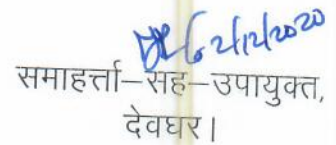 2/12/2020
समाहर्त्ता–सह–उपायुक्त,
देवघर।